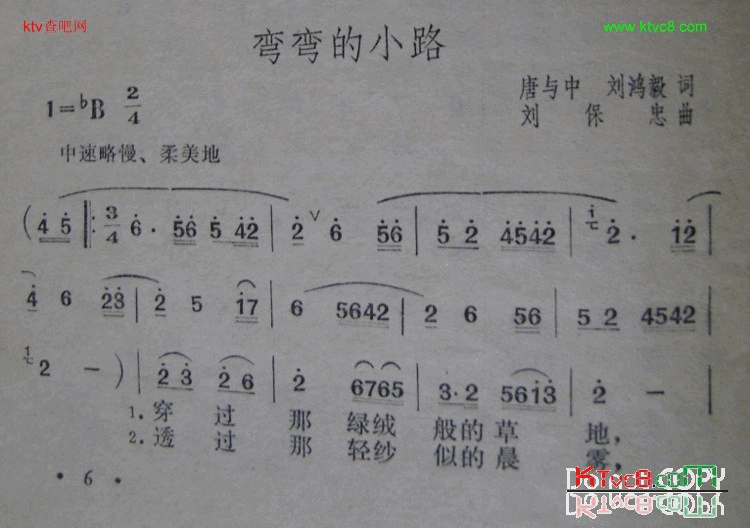 ktv查吧网
www.ktvc8.com
弯弯的小路
1=♭B 2/4
唐与中 刘鸿毅 词
刘保忠 曲
中速略慢、柔美地
(4 5 ‖: 3/4 6· 56 5 42 | 2 ∨ 6 56 | 5 2 4542 | 2· 12 |
4 6 23 | 2 5 17 | 6 5642 | 2 6 56 | 52 4542 |
2 — ) | 2 3 2 6 | 2 6765 | 3·2 5613 | 2 — |
1.穿过那绿绒般的草地,
2.透过那轻纱似的晨雾,
· 6 ·
KTvc8.com